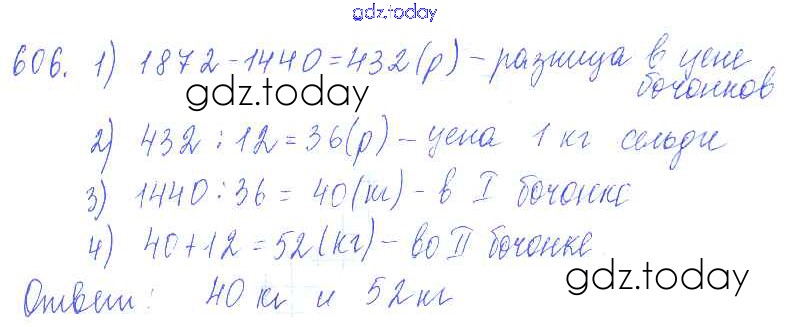 gdz.today
606. 1) 1872-1440=432(р) - разница в цене
бочонков
gdz.today
2) 432 : 12 = 36(р) - цена 1 кг сельди
3) 1440 : 36 = 40(кг) - в I бочонке
4) 40+12 = 52(кг) - во II бочонке
gdz.today
Ответ: 40 кг и 52 кг